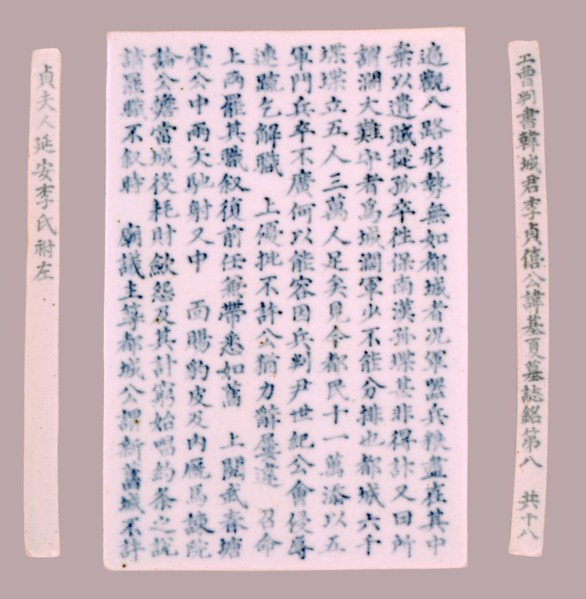 工曹判書韓城君李貞僖公諱基夏墓誌銘第八 共十八
遍觀八路形勢無如都城者況軍器兵粮盡在其中
棄以遺賊從孤卒徃保南漢孤堞甚非得計又曰所
謂濶大難守者爲城濶軍少不能分排也都城六千
堞堞立五人三萬人足矣見今都民十一萬添以五
軍門兵卒不廣何以能容因兵判尹世紀公會侵辱
連䟽乞解職 上優批不許公猶力辭屢違 召命
上両罷其職叙復前任兼帶悉如舊 上閱武春塘
臺公中両矢馳射又中 面賜豹皮及內廐馬諫院
論公擔當城役耗財斂怨及其計窮始唱約条之說
請罷職不叙時 廟議主葺都城公謂新舊城不許
貞夫人延安李氏祔左